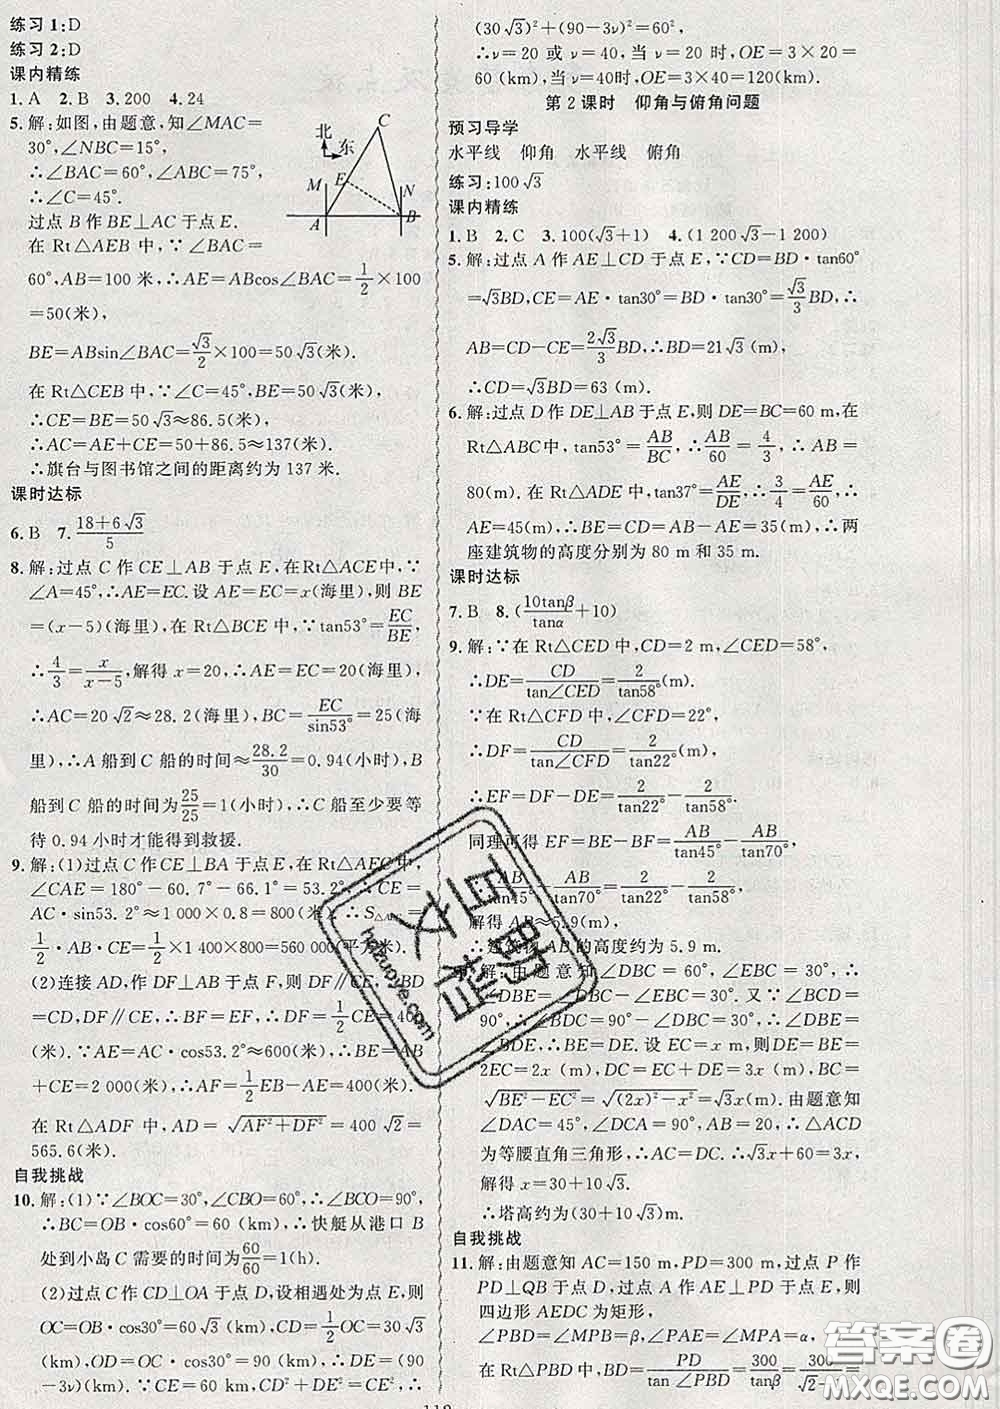 练习 1:D
练习 2:D
课内精练
1. A 2. B 3. 200 4. 24
5. 解:如图,由题意,知∠MAC=
30°,∠NBC=15°,
∴∠BAC=60°,∠ABC=75°,
∴∠C=45°.
过点 B 作 BE⊥AC 于点 E.
在 Rt△AEB 中,∵∠BAC=
60°,AB=100 米,∴AE=ABcos∠BAC=1/2×100
=50(米),
BE=ABsin∠BAC=√3/2×100=50√3(米).
在 Rt△CEB 中,∵∠C=45°,BE=50√3(米),
∴CE=BE=50√3≈86.5(米),
∴AC=AE+CE=50+86.5≈137(米).
∴旗台与图书馆之间的距离约为 137 米.
北
东
C
M
E
N
A
B
课时达标
6. B 7. (18+6√3)/5
8. 解:过点 C 作 CE⊥AB 于点 E,在 Rt△ACE中,∵
∠A=45°,∴AE=EC. 设 AE=EC=x(海里),则 BE
=(x-5)(海里),在 Rt△BCE 中,∵tan53°=EC/BE,
∴4/3=x/(x-5),解得 x=20,∴AE=EC=20(海里),
∴AC=20√2≈28.2(海里),BC=EC/sin53°=25(海
里),∴A 船到 C 船的时间≈28.2/30=0.94(小时),B
船到 C 船的时间为25/25=1(小时),∴C 船至少要等
待 0.94 小时才能得到救援.
9. 解:(1)过点 C 作 CE⊥BA 于点 E,在 Rt△AEC 中,
∠CAE=180°-60.7°-66.1°=53.2°,∴CE=
AC·sin53.2°≈1 000×0.8=800(米),∴S△ABC=
1/2·AB·CE=1/2×1 400×800=560 000(平方米).
(2)连接 AD,作 DF⊥AB 于点 F,则 DF∥CE,∵BD
=CD,DF∥CE,∴BF=EF,∴DF=1/2CE=400
(米). ∵AE=AC·cos53.2°≈600(米),∴BE=AB
+CE=2 000(米),∴AF=1/2EB-AE=400(米).
在 Rt△ADF 中,AD=√(AF²+DF²)=400√2=
565.6(米).
自我挑战
10. 解:(1)∵∠BOC=30°,∠CBO=60°,∴∠BCO=90°,
∴BC=OB·cos60°=60(km),∴快艇从港口 B
处到小岛 C 需要的时间为60/60=1(h).
(2)过点 C 作 CD⊥OA 于点 D,设相遇处为点 E,则
OC=OB·cos30°=60√3(km),CD=1/2OC=30√3
(km),OD=OC·cos30°=90(km),∴DE=(90
-3v)(km). ∵CE=60 km,CD²+DE²=CE²,∴
(30√3)²+(90-3v)²=60²,
∴v=20 或 v=40,当 v=20 时,OE=3×20=
60(km),当 v=40时,OE=3×40=120(km).
第 2 课时 仰角与俯角问题
预习导学
水平线 仰角 水平线 俯角
练习:100√3
课内精练
1. B 2. C 3. 100(√3+1) 4. (1 200√3-1 200)
5. 解:过点 A 作 AE⊥CD 于点 E,∵CD=BD·tan60°
=√3BD,CE=AE·tan30°=BD·tan30°=√3/3BD,∴
AB=CD-CE=2√3/3BD,∴BD=21√3(m),
∴CD=√3BD=63(m).
6. 解:过点 D 作 DE⊥AB 于点 E,则 DE=BC=60 m,在
Rt△ABC 中,tan53°=AB/BC,∴AB/60=4/3,∴AB=
80(m). 在 Rt△ADE 中,tan37°=AE/DE,∴3/4=AE/60,
∴AE=45(m),∴BE=CD=AB-AE=35(m),∴两
座建筑物的高度分别为 80 m 和 35 m.
课时达标
7. B 8. (10tanβ/tanα+10)
9. 解:∵在 Rt△CED 中,CD=2 m,∠CED=58°,
∴DE=CD/tan∠CED=2/tan58°(m).
∵在 Rt△CFD 中,∠CFD=22°,
∴DF=CD/tan∠CFD=2/tan22°(m),
∴EF=DF-DE=2/tan22°-2/tan58°.
同理可得 EF=BE-BF=AB/tan45°-AB/tan70°,
解得 AB≈5.9(m),
∴建筑物 AB 的高度约为 5.9 m.
解:由题意知∠DBC=60°,∠EBC=30°,
∴∠DBE=∠DBC-∠EBC=30°. 又∵∠BCD=
90°,∴∠BDC=90°-∠DBC=30°,∴∠DBE=
∠BDE,∴BE=DE. 设 EC=x m,则 DE=
BE=2EC=2x(m),DC=EC+DE=3x(m),BC=
√(BE²-EC²)=√((2x)²-x²)=√3x(m). 由题意知
∠DAC=45°,∠DCA=90°,∴△ACD
为等腰直角三角形,∴AC=DC. ∴√3x+60=3x,
解得 x=30+10√3.
∴塔高约为(30+10√3)m.
自我挑战
11. 解:由题意知 AC=150 m,PD=300 m,过点 P 作
PD⊥QB 于点 D,过点 A 作 AE⊥PD 于点 E,则
四边形 AEDC 为矩形,
∠PBD=∠MPB=β,∠PAE=∠MPA=α,
在 Rt△PBD 中,BD=PD/tan∠PBD=300/tanβ=300/(√2-
答案圈
MXQE.COM
hazuoye.com